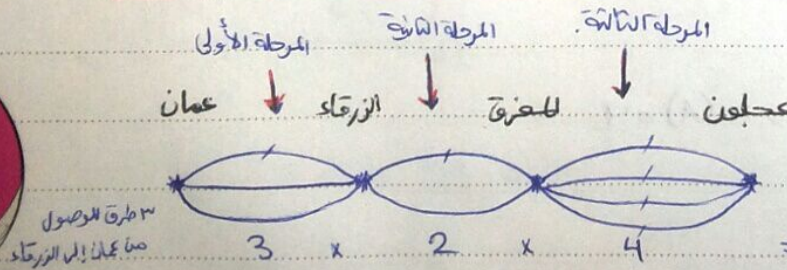 المرحلة الأولى المرحلة الثانية المرحلة الثالثة
عمان الزرقاء المفرق عجلون
٣ طرق للوصول
من عمان إلى الزرقاء
3 x 2 x 4 =